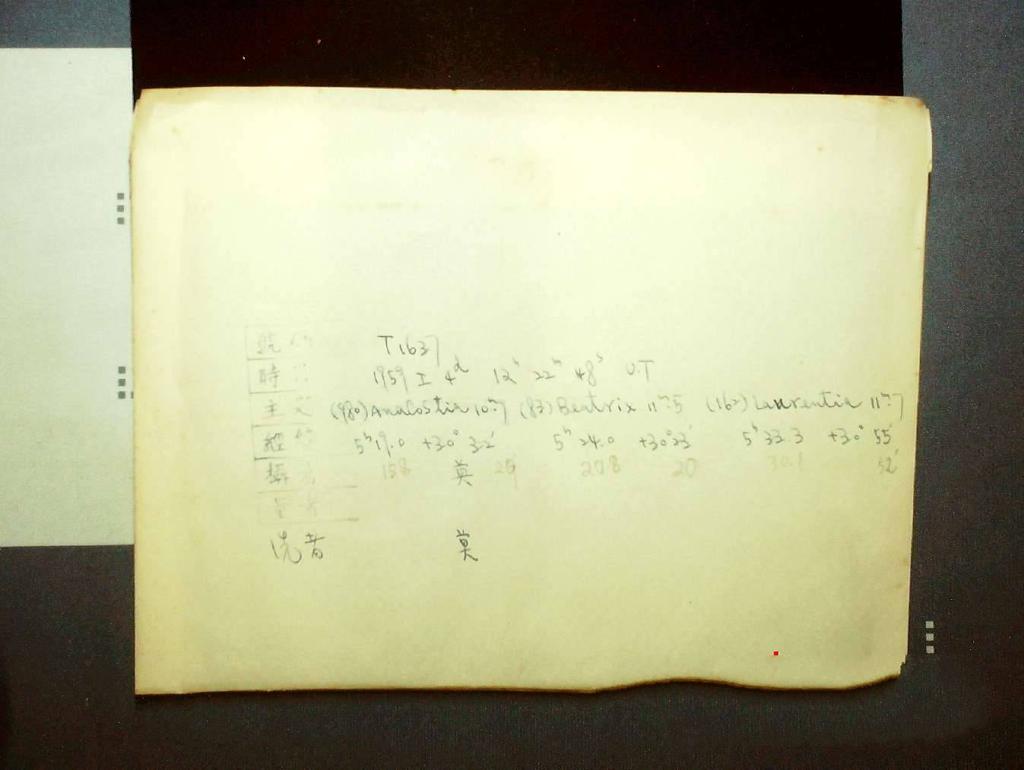 號 T1637
時 1959 I 4ᵈ 12ʰ 22ᵐ 48ˢ U.T
主 (980) Analostia 10ᵐ.7 (83) Beatrix 11ᵐ.5 (162) Laurentia 11ᵐ.7
經 5ʰ19.0 +30° 32′ 5ʰ 24.0 +30°23′ 5ʰ 33.3 +30° 55′
攝 莫 20 52′
洗者 莫